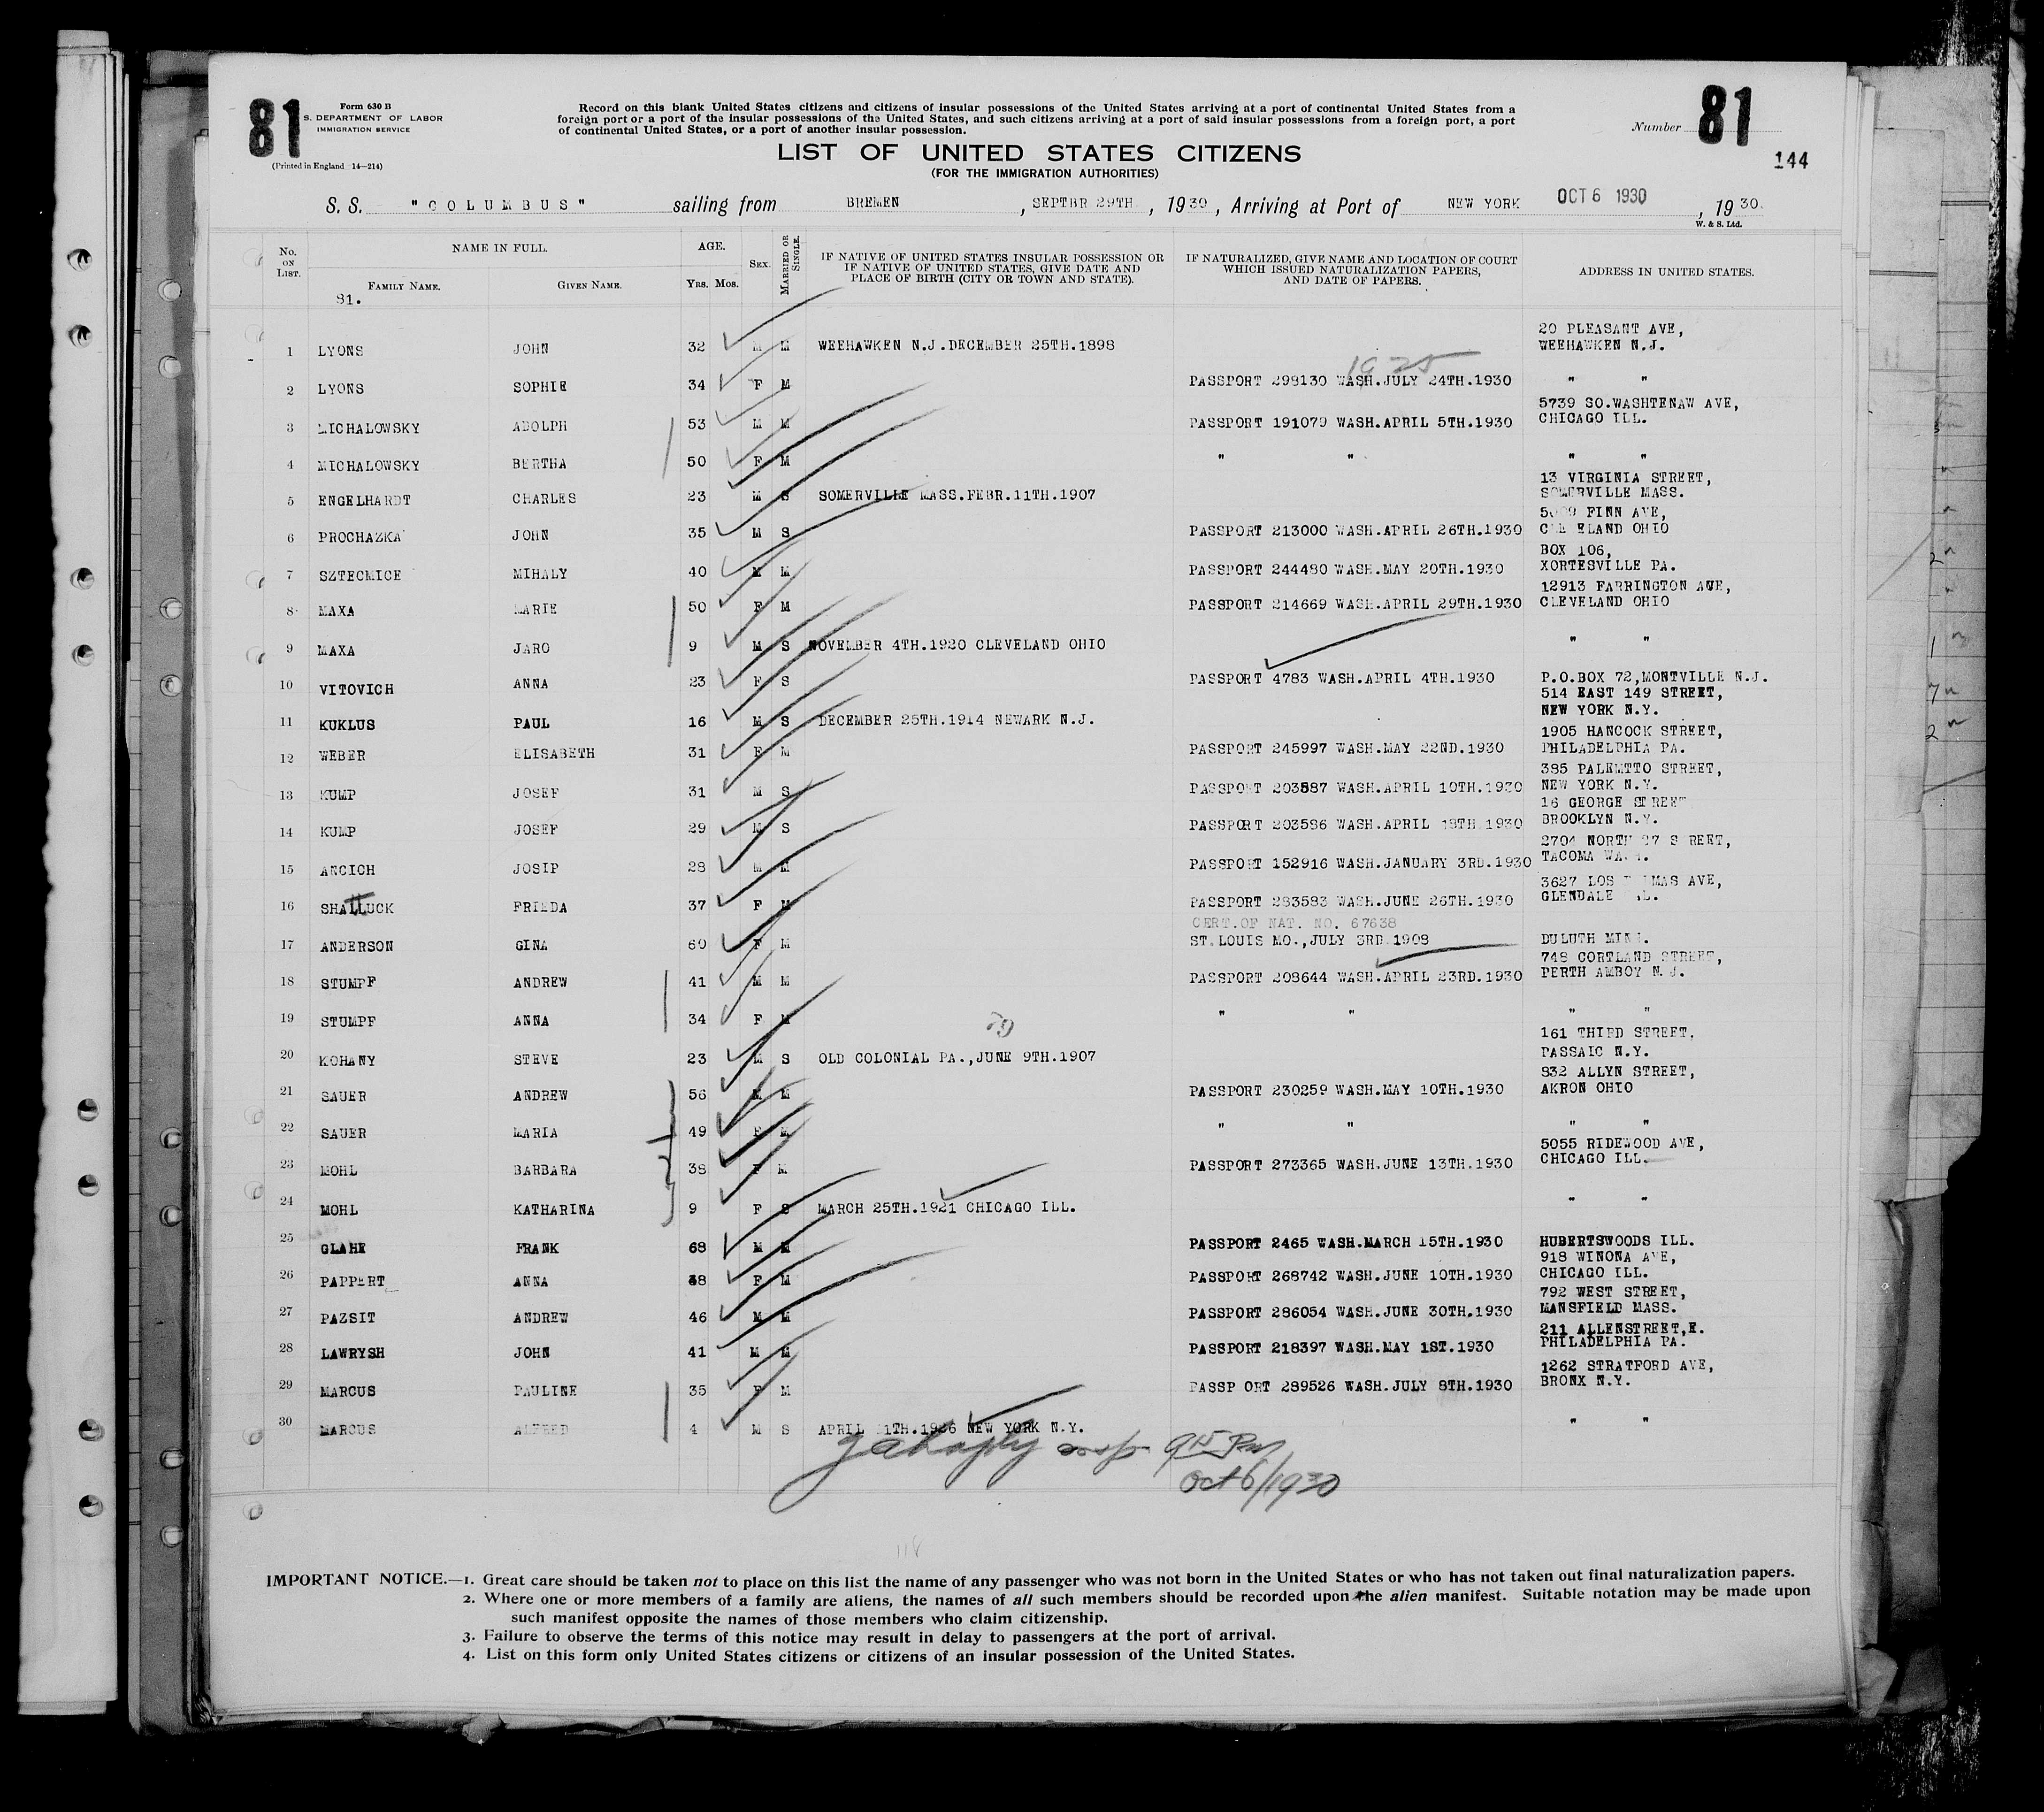 81
Form 630 B
S. DEPARTMENT OF LABOR
IMMIGRATION SERVICE
(Printed in England 14—214)
Record on this blank United States citizens and citizens of insular possessions of the United States arriving at a port of continental United States from a
foreign port or a port of the insular possessions of the United States, and such citizens arriving at a port of said insular possessions from a foreign port, a port
of continental United States, or a port of another insular possession.
Number 81
144
LIST OF UNITED STATES CITIZENS
(FOR THE IMMIGRATION AUTHORITIES)
S. S. "COLUMBUS" sailing from BREMEN, SEPTBR 29TH, 1930, Arriving at Port of NEW YORK OCT 6 1930, 1930.
W. & S. Ltd.
No. ON LIST. NAME IN FULL. FAMILY NAME. GIVEN NAME. AGE. Yrs. Mos. SEX. MARRIED OR SINGLE. IF NATIVE OF UNITED STATES INSULAR POSSESSION OR IF NATIVE OF UNITED STATES, GIVE DATE AND PLACE OF BIRTH (CITY OR TOWN AND STATE). IF NATURALIZED, GIVE NAME AND LOCATION OF COURT WHICH ISSUED NATURALIZATION PAPERS, AND DATE OF PAPERS. ADDRESS IN UNITED STATES.
81.
20 PLEASANT AVE,
1 LYONS JOHN 32 M M WEEHAWKEN N.J.DECEMBER 25TH.1898 WEEHAWKEN N.J.
1925
2 LYONS SOPHIE 34 F M PASSPORT 298130 WASH.JULY 24TH.1930 " "
5739 SO.WASHTENAW AVE,
3 MICHALOWSKY ADOLPH 53 M M PASSPORT 191079 WASH.APRIL 5TH.1930 CHICAGO ILL.
4 MICHALOWSKY BERTHA 50 F M " " " "
13 VIRGINIA STREET,
5 ENGELHARDT CHARLES 23 M S SOMERVILLE MASS.FEBR.11TH.1907 SOMERVILLE MASS.
FINN AVE,
6 PROCHAZKA JOHN 35 M S PASSPORT 213000 WASH.APRIL 26TH.1930 CLEVELAND OHIO
BOX 106,
7 SZTECMICE MIHALY 40 M M PASSPORT 244480 WASH.MAY 20TH.1930 XORTESVILLE PA.
12913 FARRINGTON AVE,
8 MAXA MARIE 50 F M PASSPORT 214669 WASH.APRIL 29TH.1930 CLEVELAND OHIO
9 MAXA JARO 9 M S NOVEMBER 4TH.1920 CLEVELAND OHIO " "
10 VITOVICH ANNA 23 F S PASSPORT 4783 WASH.APRIL 4TH.1930 P.O.BOX 72,MONTVILLE N.J.
514 EAST 149 STREET,
11 KUKLUS PAUL 16 M S DECEMBER 25TH.1914 NEWARK N.J. NEW YORK N.Y.
1905 HANCOCK STREET,
12 WEBER ELISABETH 31 F M PASSPORT 245997 WASH.MAY 22ND.1930 PHILADELPHIA PA.
385 PALEMTTO STREET,
13 KUMP JOSEF 31 M S PASSPORT 203587 WASH.APRIL 10TH.1930 NEW YORK N.Y.
16 GEORGE STREET
14 KUMP JOSEF 29 M S PASSPORT 203586 WASH.APRIL 18TH.1930 BROOKLYN N.Y.
2704 NORTH 27 STREET,
15 ANCICH JOSIP 28 M M PASSPORT 152916 WASH.JANUARY 3RD.1930 TACOMA WASH.
3627 LOS AVE,
16 SHATTUCK FRIEDA 37 F M PASSPORT 283583 WASH.JUNE 26TH.1930 GLENDALE
CERT.OF NAT. NO. 67638
17 ANDERSON GINA 60 F M ST.LOUIS MO.,JULY 3RD.1908 DULUTH MINN.
748 CORTLAND STREET,
18 STUMPF ANDREW 41 M M PASSPORT 208644 WASH.APRIL 23RD.1930 PERTH AMBOY N.J.
19 STUMPF ANNA 34 F M " " " "
161 THIRD STREET,
20 KOHANY STEVE 23 M S OLD COLONIAL PA.,JUNE 9TH.1907 PASSAIC N.Y.
832 ALLYN STREET,
21 SAUER ANDREW 56 M M PASSPORT 230259 WASH.MAY 10TH.1930 AKRON OHIO
22 SAUER MARIA 49 F M " " " "
5055 RIDEWOOD AVE,
23 MOHL BARBARA 38 F M PASSPORT 273365 WASH.JUNE 13TH.1930 CHICAGO ILL.
24 MOHL KATHARINA 9 F S MARCH 25TH.1921 CHICAGO ILL. " "
25 GLAHE FRANK 68 M M PASSPORT 2465 WASH.MARCH 15TH.1930 HUBERTSWOODS ILL.
918 WINONA AVE,
26 PAPPERT ANNA 38 F M PASSPORT 268742 WASH.JUNE 10TH.1930 CHICAGO ILL.
792 WEST STREET,
27 PAZSIT ANDREW 46 M M PASSPORT 286054 WASH.JUNE 30TH.1930 MANSFIELD MASS.
211 ALLENSTREET,E.
28 LAWRYSH JOHN 41 M M PASSPORT 218397 WASH.MAY 1ST.1930 PHILADELPHIA PA.
1262 STRATFORD AVE,
29 MARCUS PAULINE 35 F M PASSP ORT 289526 WASH.JULY 8TH.1930 BRONX N.Y.
30 MARCUS ALFRED 4 M S APRIL 11TH.1926 NEW YORK N.Y. " "
9 15 Pm
Oct 6/1930
118
IMPORTANT NOTICE.—1. Great care should be taken not to place on this list the name of any passenger who was not born in the United States or who has not taken out final naturalization papers.
2. Where one or more members of a family are aliens, the names of all such members should be recorded upon the alien manifest. Suitable notation may be made upon
such manifest opposite the names of those members who claim citizenship.
3. Failure to observe the terms of this notice may result in delay to passengers at the port of arrival.
4. List on this form only United States citizens or citizens of an insular possession of the United States.